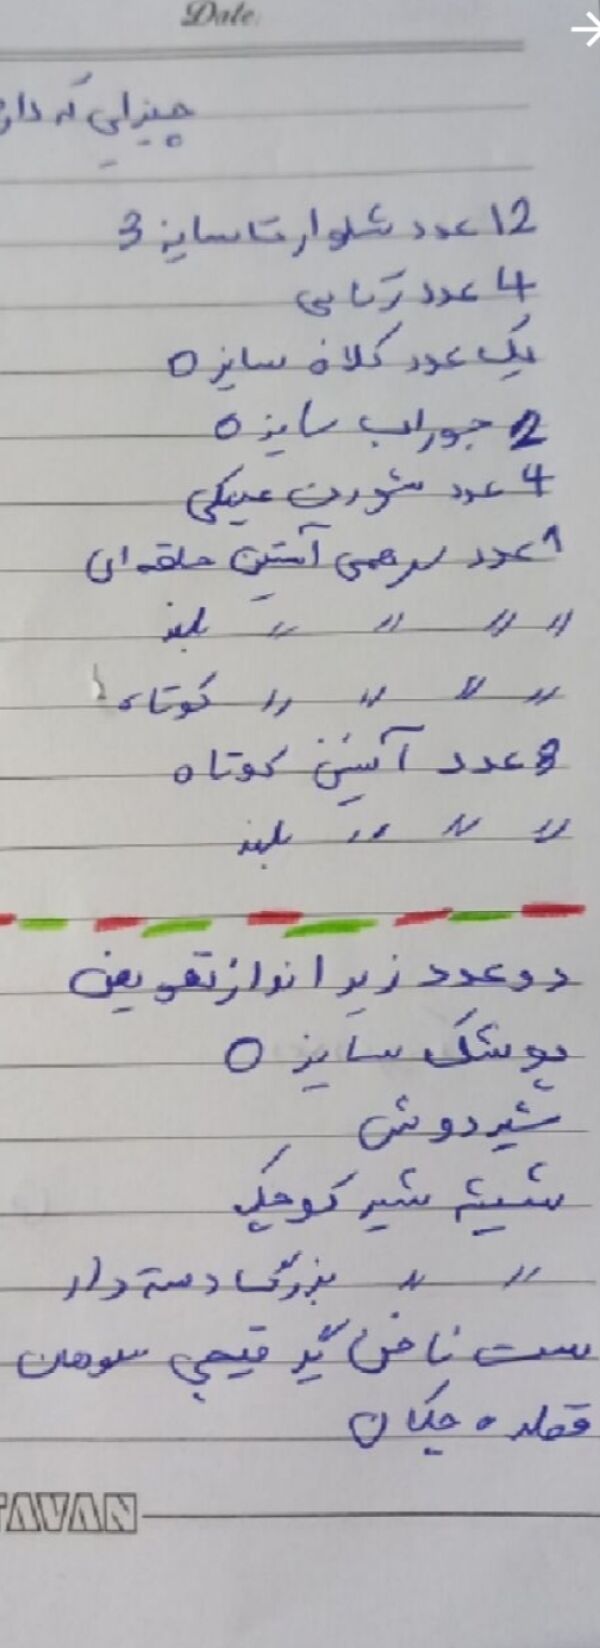 Date:
چیزایی که دار
12 عدد شلوار تا سایز 3
4 عدد رکابی
یک عدد کلاه سایز 0
2 جوراب سایز 0
4 عدد شورت عینکی
1 عدد سرهمی آستین حلقه ای
〃 〃 〃 〃 بلند
〃 〃 〃 〃 کوتاه
3 عدد آستین کوتاه
〃 〃 〃 بلند
دو عدد زیر انداز تعویض
پوشک سایز 0
شیردوش
شیشه شیر کوچک
〃 〃 بزرگ دسته دار
ست ناخن گیر قیچی سوهان
قطره چکان
TAVAN